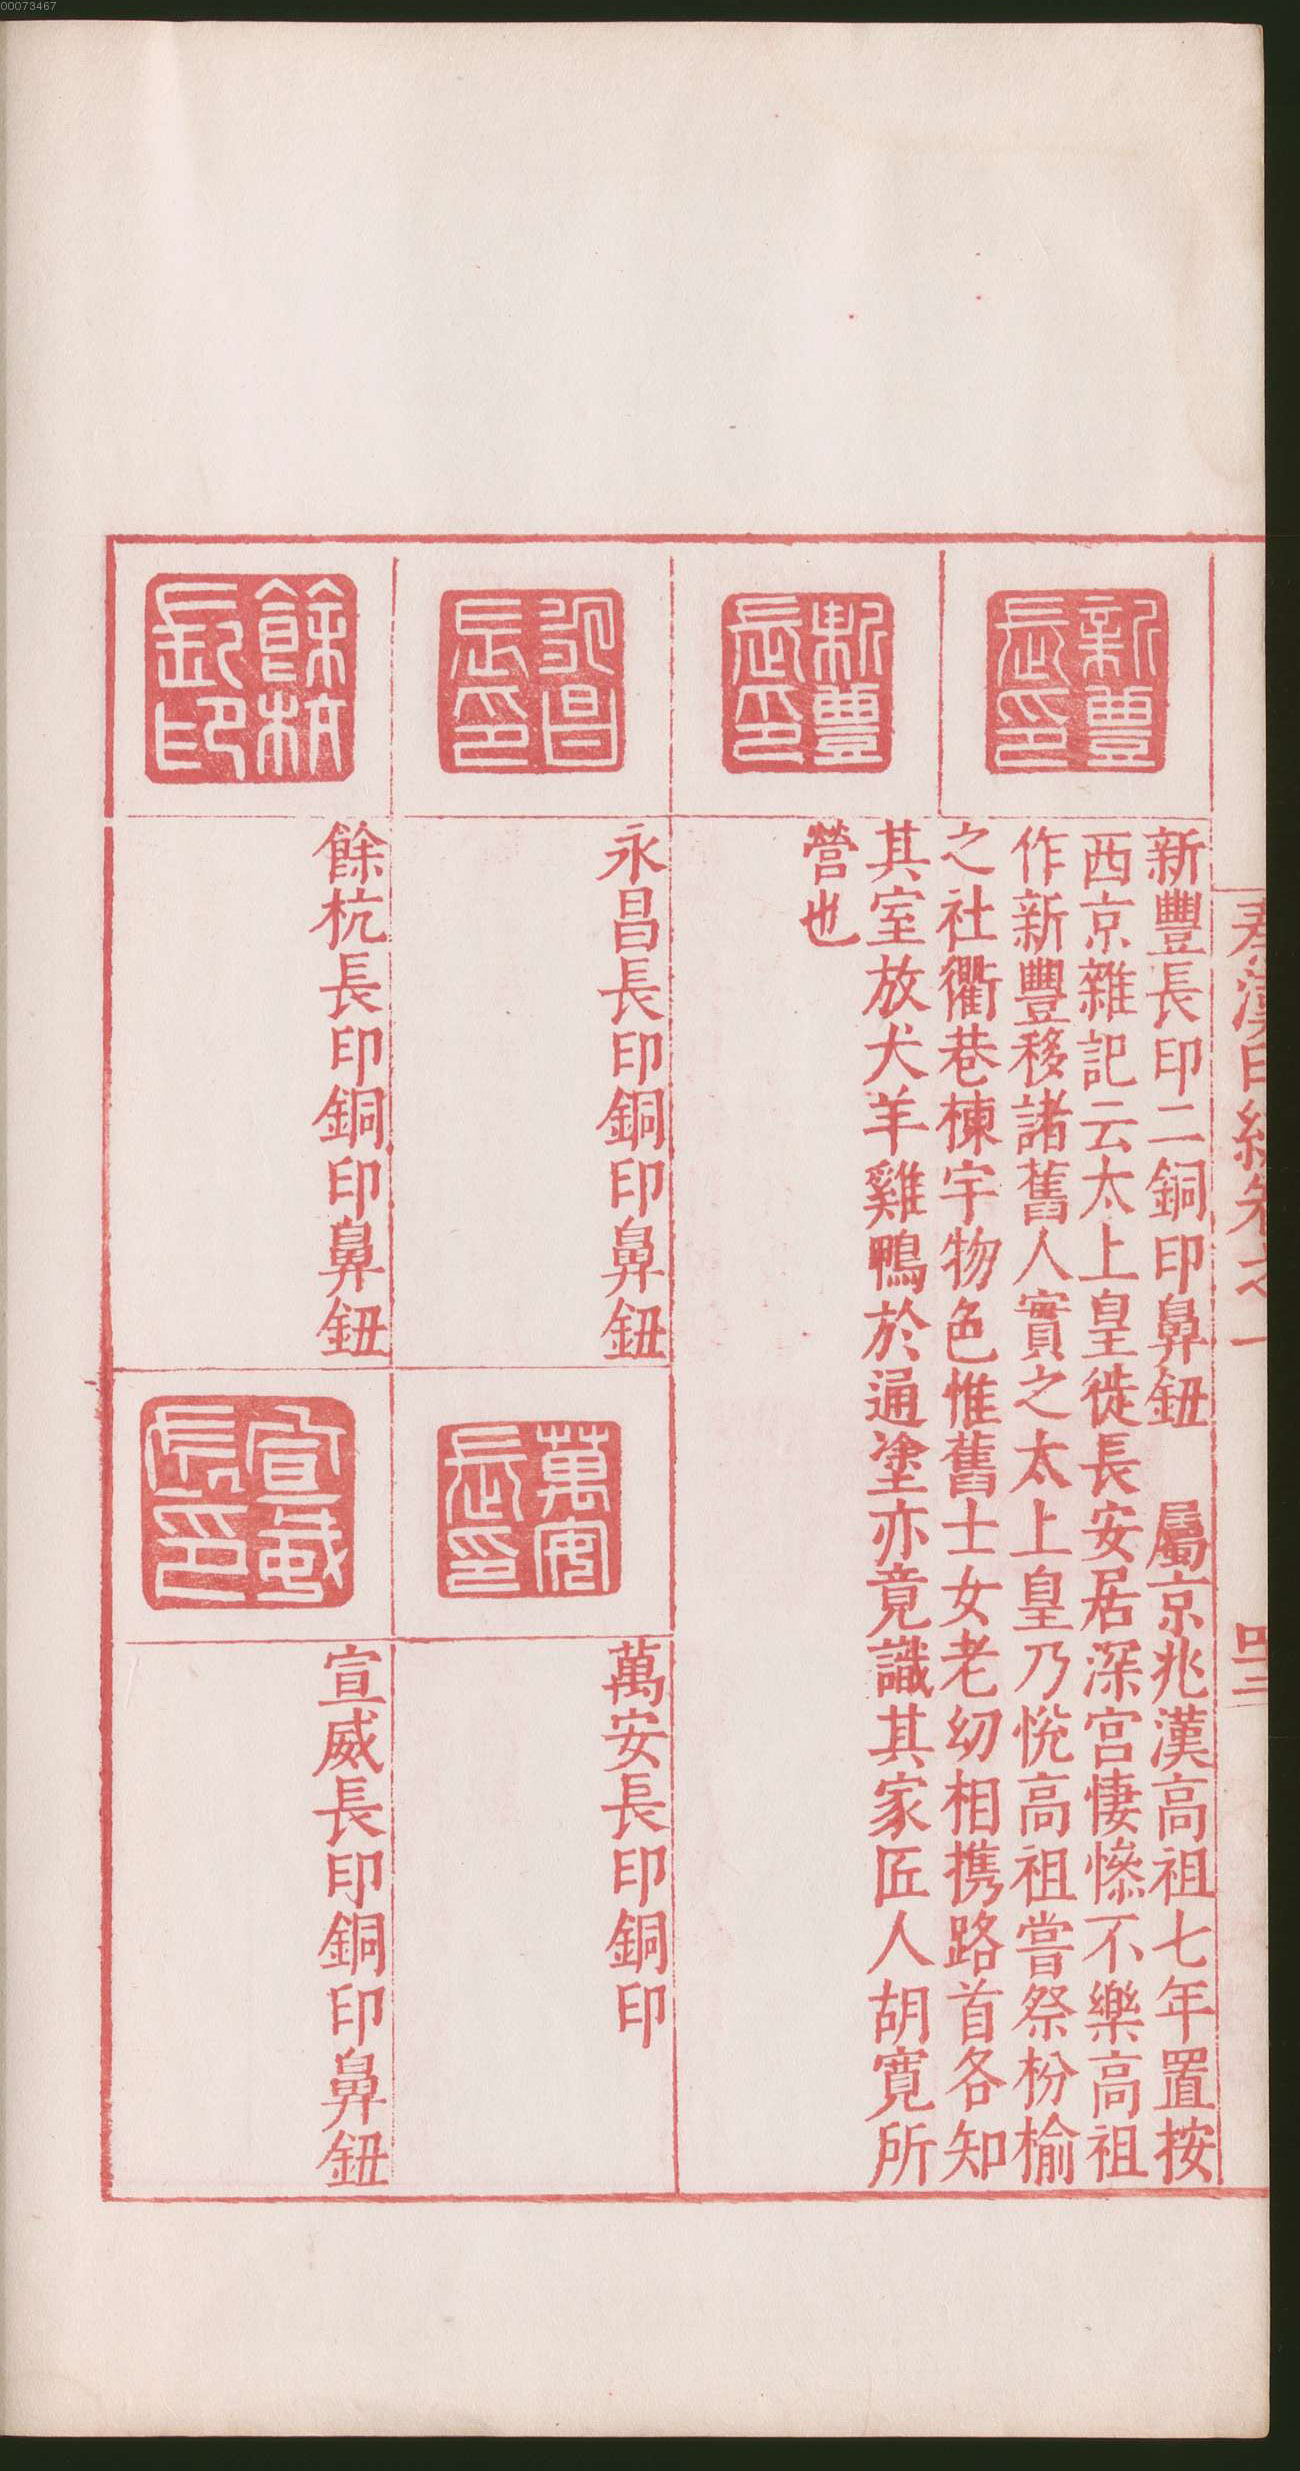 00073467
秦漢印統卷之一
四三
新豐長印
新豐長印二銅印鼻鈕　屬京兆漢高祖七年置按
西京雜記云太上皇徙長安居深宫悽慘不樂高祖
作新豐移諸舊人實之太上皇乃悅高祖嘗祭枌榆
之社衢巷棟宇物色惟舊士女老幼相携路首各知
其室放犬羊雞鴨於通塗亦竟識其家匠人胡寬所
營也
新豐長印
永昌長印
永昌長印銅印鼻鈕
萬安長印
萬安長印銅印
餘杭長印
餘杭長印銅印鼻鈕
宣威長印
宣威長印銅印鼻鈕